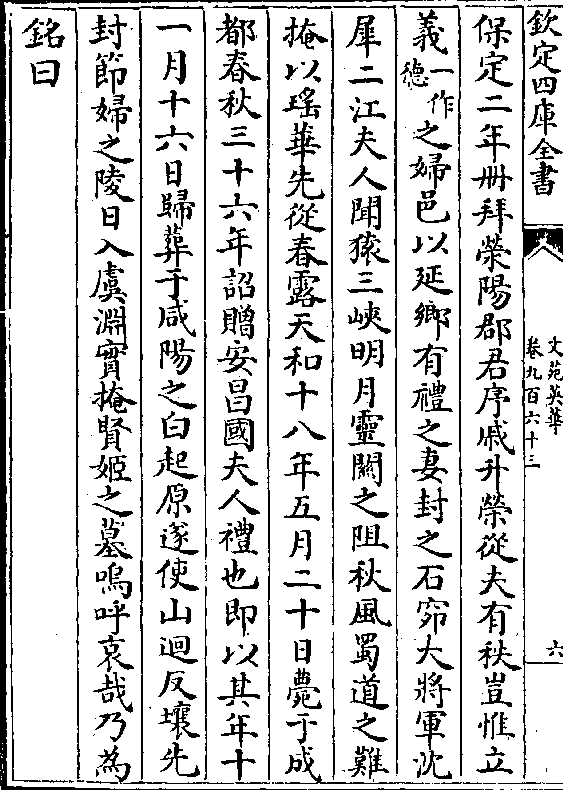 欽定四庫全書
文苑英華
卷九百六十三
六
保定二年冊拜榮陽郡君序戚升榮從夫有秩豈惟立
義一作德之婦邑以延鄉有禮之妻封之石窌大將軍沈
犀二江夫人聞猿三峽明月靈關之阻秋風蜀道之難
掩以瑤華先從春露天和十八年五月二十日薨于成
都春秋三十六年詔贈安昌國夫人禮也即以其年十
一月十六日歸葬于咸陽之白起原遂使山迴反壤先
封節婦之陵日入虞淵實掩賢姬之墓嗚呼哀哉乃為
銘曰